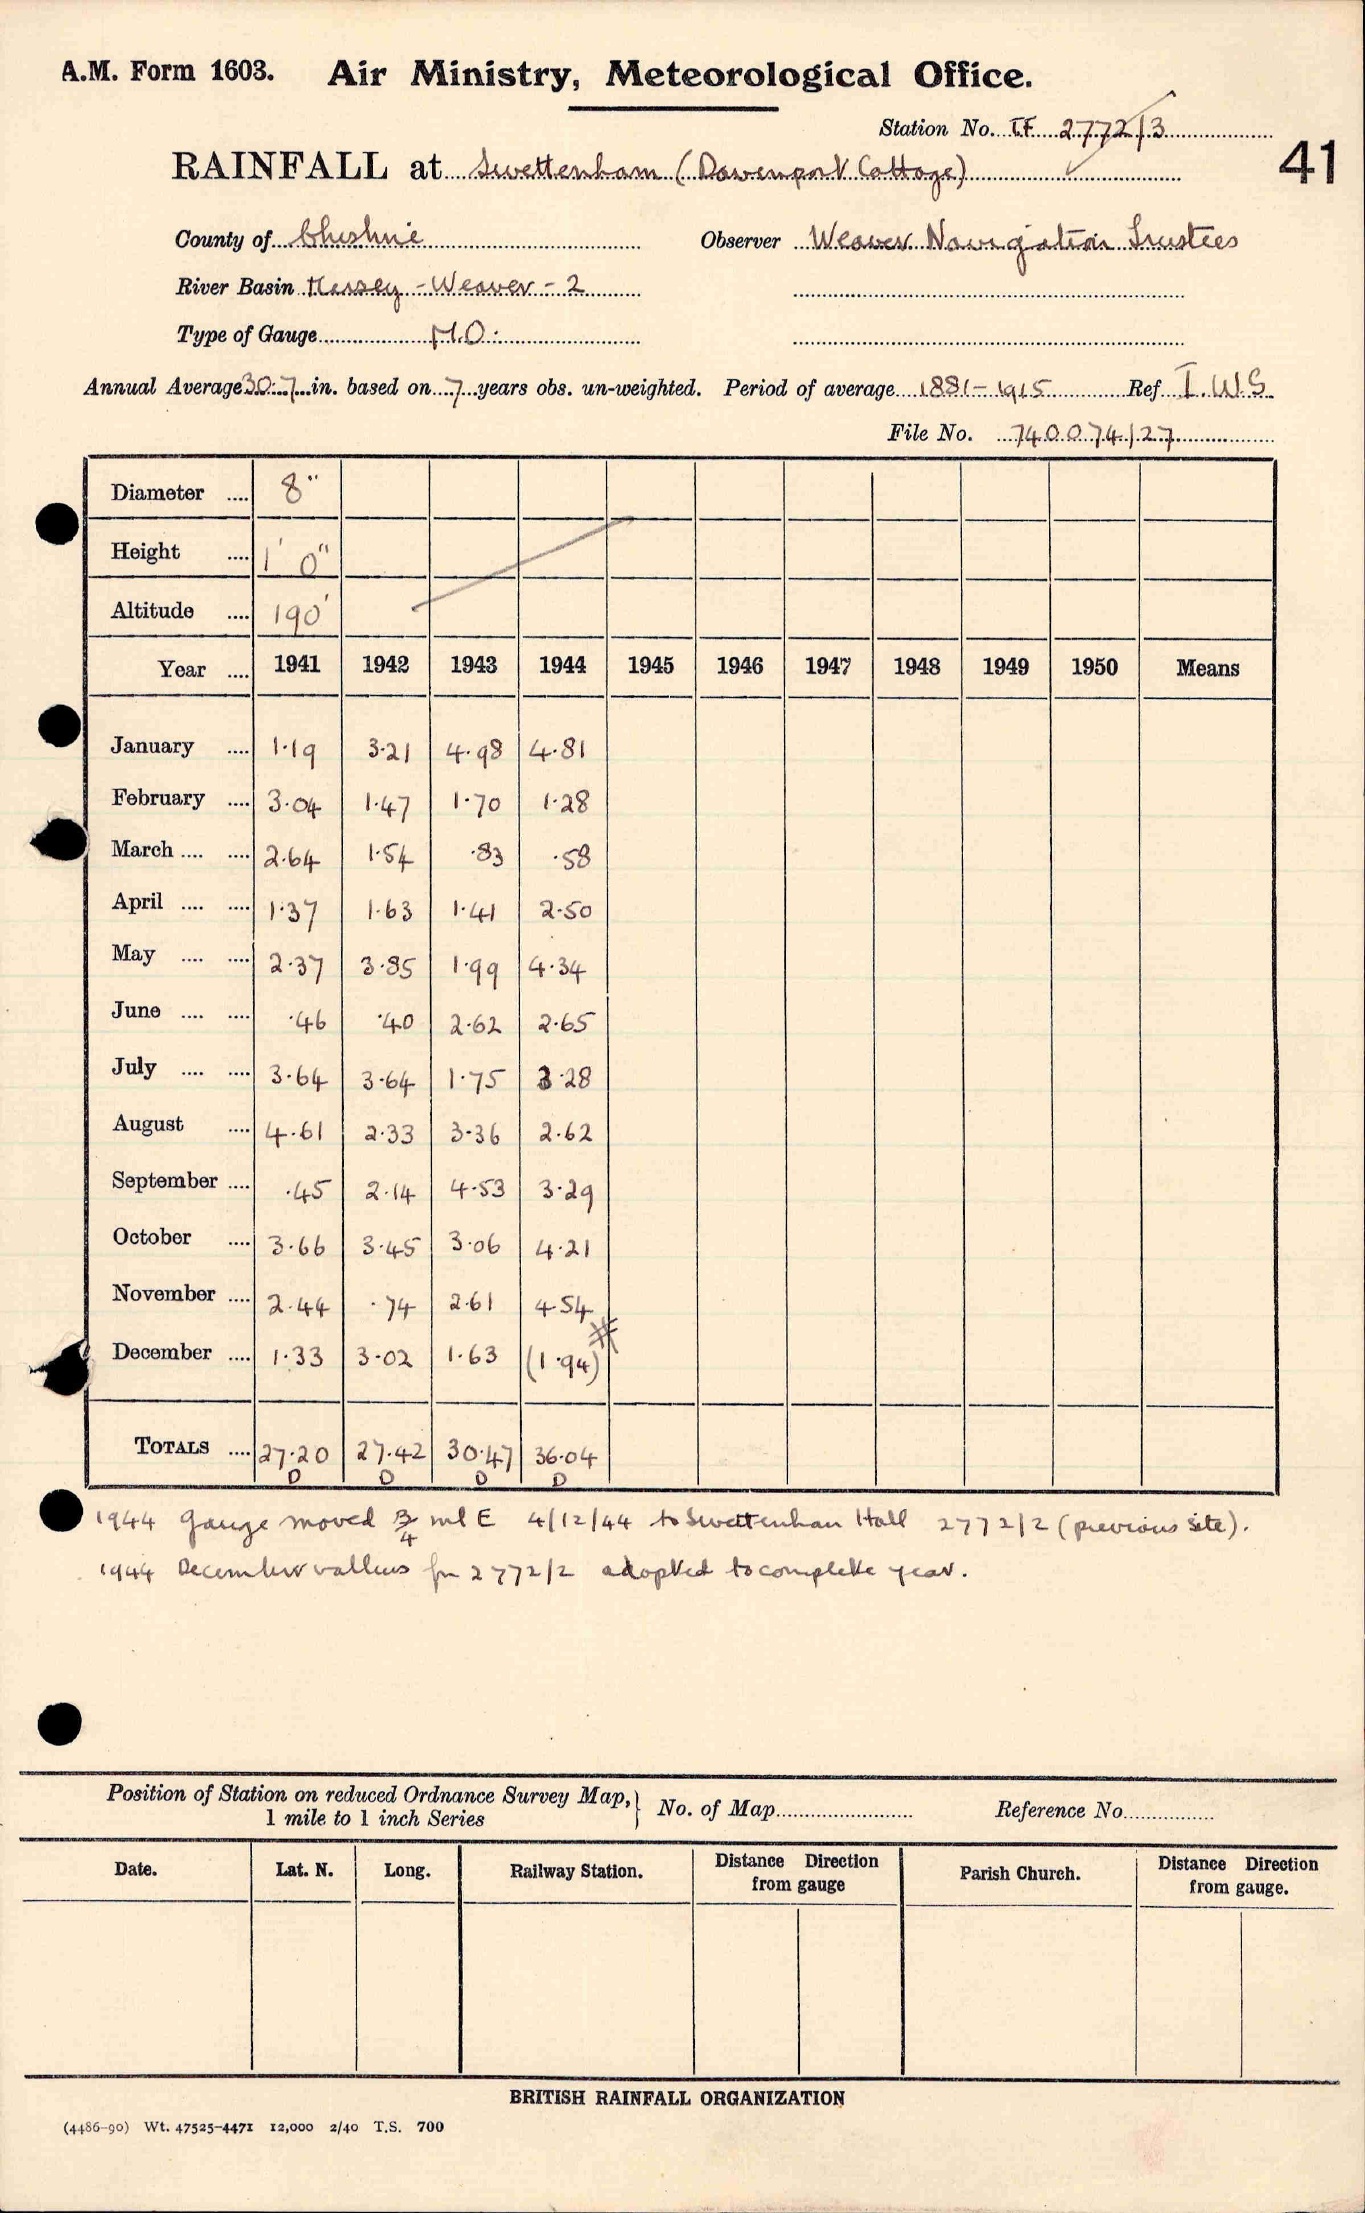 A.M. Form 1603. Air Ministry, Meteorological Office.
Station No. IF 2772/3
41
RAINFALL at Swettenham (Davenport Cottage)
County of Cheshire Observer Weaver Navigation Trustees
River Basin Mersey - Weaver - 2
Type of Gauge M.O.
Annual Average 30.7 in. based on 7 years obs. un-weighted. Period of average 1881-1915 Ref I.W.S.
File No. 740074/27
Diameter .... 8"
Height .... 1' 0"
Altitude .... 190'
Year .... 1941 1942 1943 1944 1945 1946 1947 1948 1949 1950 Means
January .... 1.19 3.21 4.98 4.81
February .... 3.04 1.47 1.70 1.28
March .... .... 2.64 1.54 .83 .58
April .... .... 1.37 1.63 1.41 2.50
May .... .... 2.37 3.85 1.99 4.34
June .... .... .46 .40 2.62 2.65
July .... .... 3.64 3.64 1.75 3.28
August .... 4.61 2.33 3.36 2.62
September .... .45 2.14 4.53 3.29
October .... 3.66 3.45 3.06 4.21
November .... 2.44 .74 2.61 4.54
December .... 1.33 3.02 1.63 (1.94)#
TOTALS .... 27.20 27.42 30.47 36.04
D D D D
1944 Gauge moved 3/4 ml E 4/12/44 to Swettenham Hall 2772/2 (previous site).
1944 December values for 2772/2 adopted to complete year.
Position of Station on reduced Ordnance Survey Map,} No. of Map Reference No.
1 mile to 1 inch Series
Date. Lat. N. Long. Railway Station. Distance Direction from gauge Parish Church. Distance Direction from gauge.
BRITISH RAINFALL ORGANIZATION
(4486-90) Wt. 47525-4471 12,000 2/40 T.S. 700